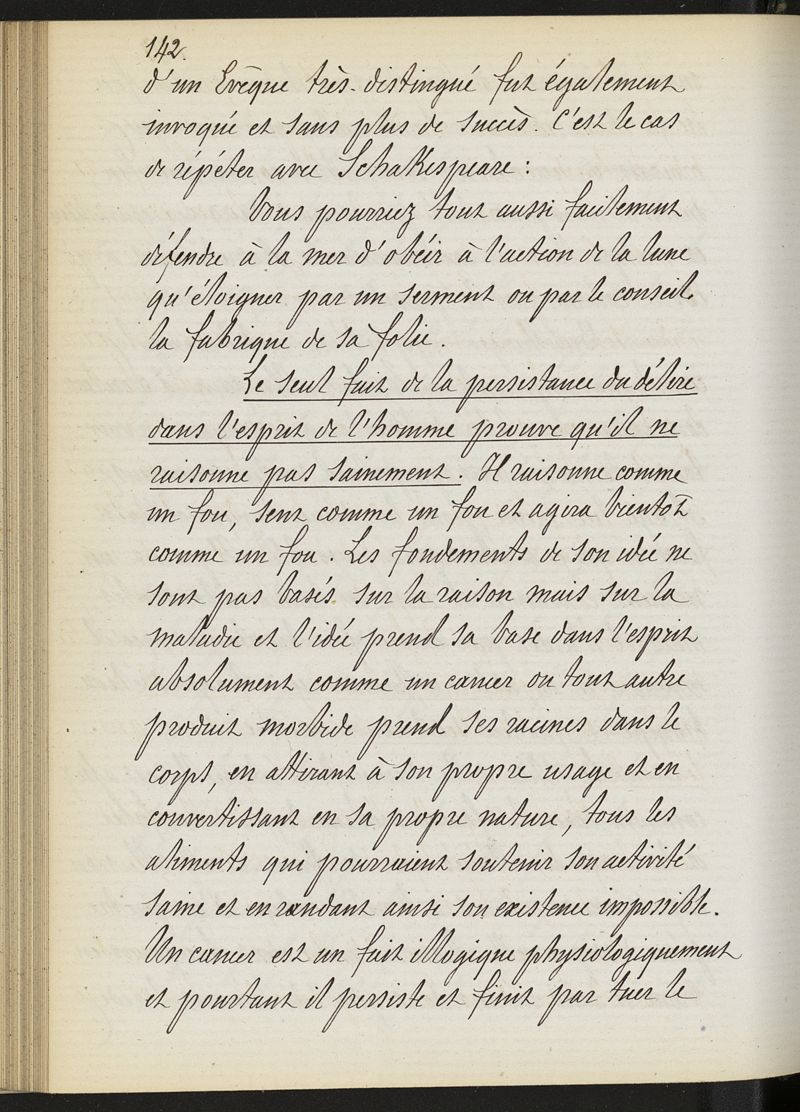 142.
d'un Evêque très-distingué fut également
invoqué et sans plus de succès. C'est le cas
de répéter avec Schakespeare :
Vous pourriez tout aussi facilement
défendre à la mer d'obéir à l'action de la lune
qu'éloigner par un serment ou par le conseil
la fabrique de sa folie.
Le seul fait de la persistance du délire
dans l'esprit de l'homme prouve qu'il ne
raisonne pas sainement. Il raisonne comme
un fou, sent comme un fou et agira bientôt
comme un fou. Les fondements de son idée ne
sont pas basés sur la raison mais sur la
maladie et l'idée prend sa base dans l'esprit
absolument comme un cancer ou tout autre
produit morbide prend ses racines dans le
corps, en attirant à son propre usage et en
convertissant en sa propre nature, tous les
aliments qui pourraient soutenir son activité
saine et en randant ainsi son existence impossible.
Un cancer est un fait illogique physiologiquement
et pourtant il persiste et finit par tuer le